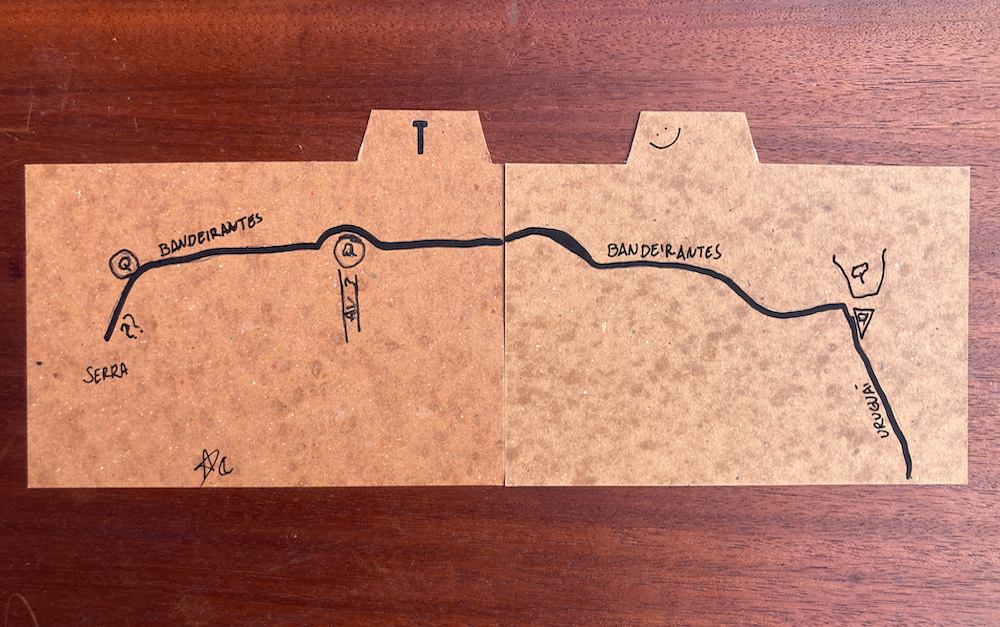 T
BANDEIRANTES
Q
Q
AV ?
R?
SERRA
BANDEIRANTES
Q
URUGUAI